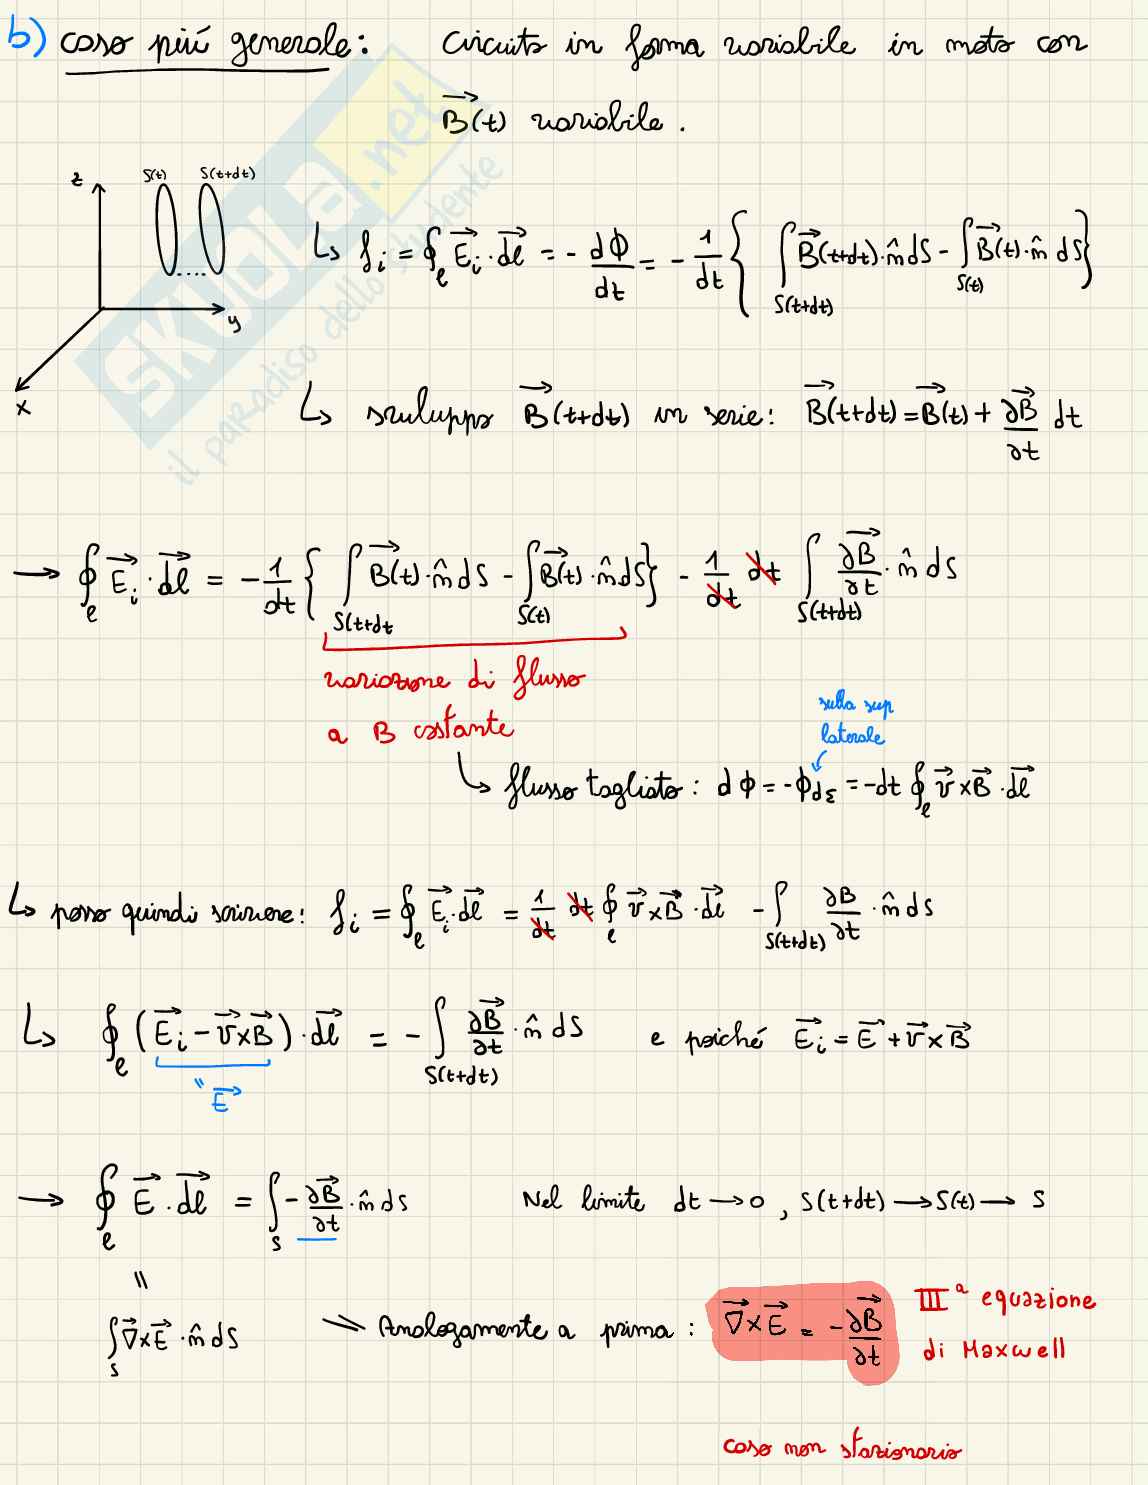 b) caso piú generale: Circuito in forma variabile in moto con
B⃗(t) variabile.
z
S(t) S(t+dt)
y
x
↳ f_i = ∮_ℓ E⃗_i · dl⃗ = - dΦ/dt = - 1/dt { ∫_S(t+dt) B⃗(t+dt)·n̂ dS - ∫_S(t) B⃗(t)·n̂ dS }
↳ sviluppo B⃗(t+dt) in serie: B⃗(t+dt) = B⃗(t) + ∂B⃗/∂t dt
→ ∮_ℓ E⃗_i · dl⃗ = - 1/dt { ∫_S(t+dt B⃗(t)·n̂ dS - ∫_S(t) B⃗(t)·n̂ dS } - 1/dt dt ∫_S(t+dt) ∂B⃗/∂t · n̂ dS
variazione di flusso
a B costante
sulla sup
laterale
↳ flusso tagliato: dΦ = -Φ_dΣ = -dt ∮_ℓ v⃗×B⃗ · dl⃗
↳ posso quindi scrivere: f_i = ∮_ℓ E⃗_i · dl⃗ = 1/dt dt ∮_ℓ v⃗×B⃗ · dl⃗ - ∫_S(t+dt) ∂B/∂t · n̂ dS
↳ ∮_ℓ (E⃗_i - v⃗×B⃗) · dl⃗ = - ∫_S(t+dt) ∂B⃗/∂t · n̂ dS e poiché E⃗_i = E⃗ + v⃗×B⃗
" E⃗
→ ∮_ℓ E⃗ · dl⃗ = ∫_S - ∂B⃗/∂t · n̂ dS Nel limite dt → 0, S(t+dt) → S(t) → S
=
∫_S ∇⃗×E⃗ · n̂ dS Analogamente a prima: ∇⃗×E⃗ = - ∂B⃗/∂t IIIª equazione
di Maxwell
caso non stazionario
SKUOLA.net
il paradiso dello studente